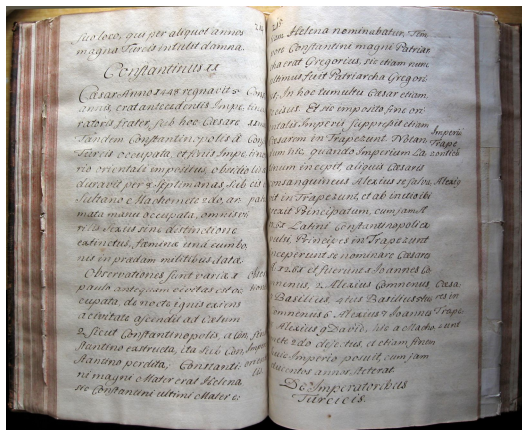 suo loco, qui per aliquot annos
magna Turcis intulit damna.
Constantinus
Caesar Anno 1448 regnavit 5
annis, erat antecedentis Impe
ratoris frater, sub hoc Caesare
Tandem Constantinopolis a
Turcis occupata, et finis Impe
rio orientali impositus, obsidio
duravit per 8 septimanas, sub
Sultano Machomete 2do, an
mata manu occupata, omnis vi
rilis sexus sine distinctione
extinctus, faminae una cum bo
nis in praedam militibus datae
Observationes sunt variae
paulo antequam civitas est oc
cupata, de nocte ignis exiens
a civitate ascendit ad caelum
2 sicut Constantinopolis, a Con
stantino extructa, ita sub Con
stantino perdita, Constanti
ni magni Mater erat Helena
sic Constantini ultimi Mater e
233
Helena nominabatur, Tem
pore Constantini magni Patriar
cha erat Gregorius, sic etiam
ultimus fuit Patriarcha Gregori
In hoc tumultu Caesar etiam
Et sic imposito fine ori
entalis Imperii supprefsit etiam
Caesarem in Trapezunt. Notan
Imperii
dum hic quando Imperium La
Trape
zontich
incepit, aliquis Caesaris
consanguineus Alexius se salvavit
Alexio
in Trapezunt, et ab initio ibi
Principatum, cum jam
Latini Constantinopoli ex
pulsi, Principes in Trapezunt
inceperunt se nominare Caesares
1265 et fuerunt Joannes Co
mnenus, 2 Alexius Comnenus
Caesa
3 Basilius, 4tus Basilius
res in
Comnenus 6 Alexius 7 Joannes
Trape
8 Alexius 9 David, hic a Macho
zunt
mete 2do dejectus, et etiam finem
huic Imperio posuit, cum jam
ducentos annos steterat.
De Imperatoribus
Turcicis.